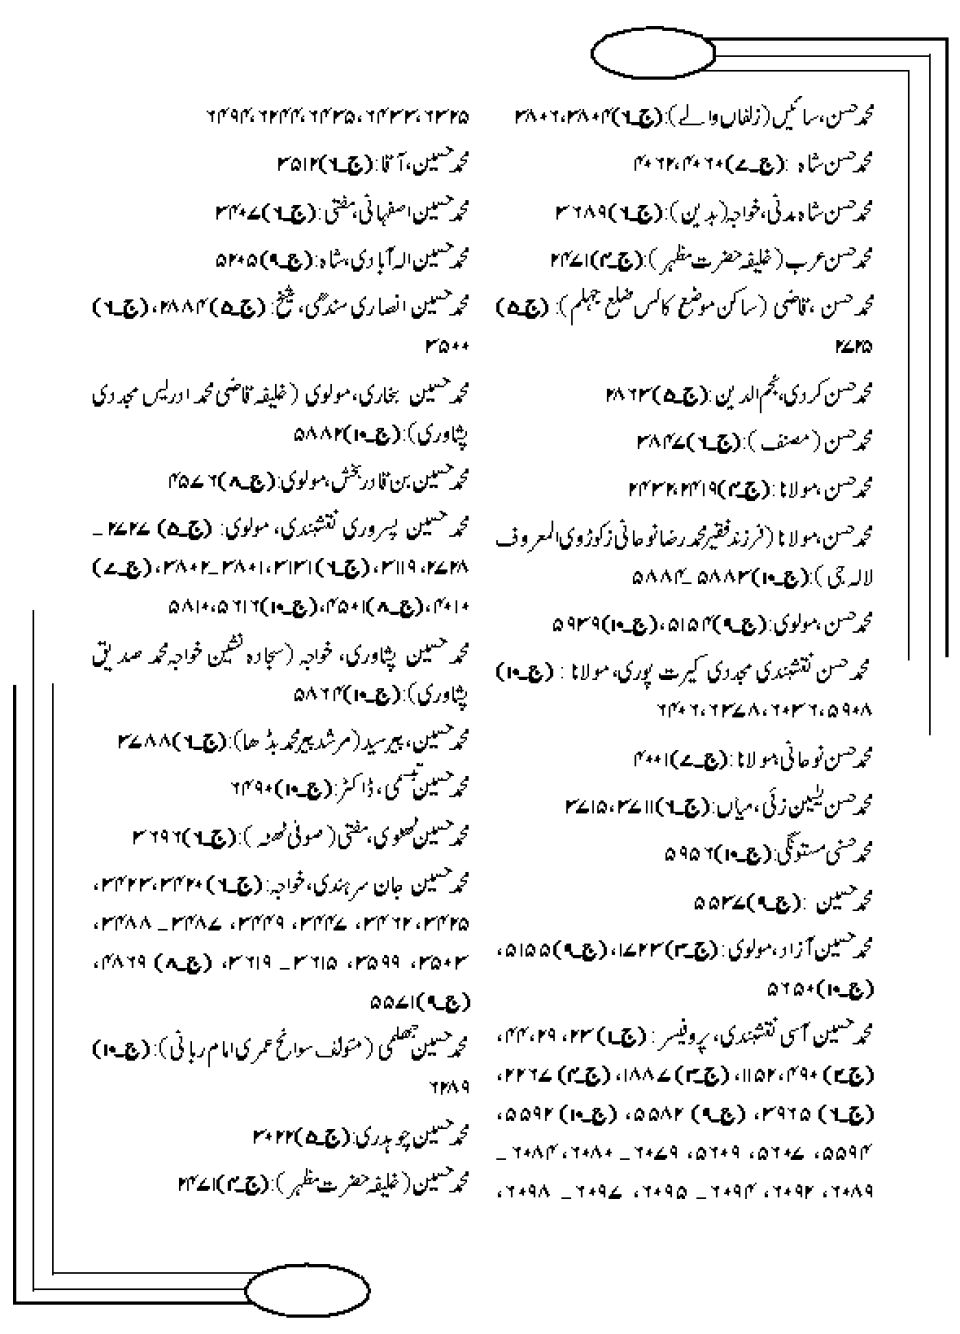 محمد حسن، سائیں (زلفاں والے): (ج۔۶) ۳۸۰۴، ۳۸۰۶
محمد حسن شاہ: (ج۔۷) ۴۰۶۰، ۴۰۶۲
محمد حسن شاہ مدنی، خواجہ (بدین): (ج۔۶) ۳۶۸۹
محمد حسن عرب (خلیفہ حضرت مظہر): (ج۔۴) ۲۴۷۱
محمد حسن، قاضی (ساکن موضع کالس ضلع جہلم): (ج۔۵)
۲۷۲۵
محمد حسن کردی، نجم الدین: (ج۔۵) ۲۸۶۳
محمد حسن (مصنف): (ج۔۶) ۳۸۴۷
محمد حسن، مولانا: (ج۔۴) ۲۴۱۹، ۲۴۳۲
محمد حسن، مولانا (فرزند فقیر محمد رضا نوحانی زکوڑوی المعروف
لالہ جی): (ج۔۱۰) ۵۸۸۳۔ ۵۸۸۴
محمد حسن، مولوی: (ج۔۹) ۵۱۵۴، (ج۔۱۰) ۵۹۳۹
محمد حسن نقشبندی مجددی کیرت پوری، مولانا: (ج۔۱۰)
۵۹۰۸، ۶۰۳۶، ۶۳۷۸، ۶۴۰۶
محمد حسن نوحانی، مولانا: (ج۔۷) ۴۰۰۱
محمد حسن یٰسین زئی، میاں: (ج۔۶) ۳۷۱۱، ۳۷۱۵
محمد حسنی مستونگی: (ج۔۱۰) ۵۹۵۶
محمد حسین: (ج۔۹) ۵۵۳۷
محمد حسین آزاد، مولوی: (ج۔۳) ۱۷۲۳، (ج۔۹) ۵۱۵۵،
(ج۔۱۰) ۵۶۵۰
محمد حسین آسی نقشبندی، پروفیسر: (ج۔۱) ۲۳، ۲۹، ۴۴،
(ج۔۲) ۴۹۰، ۱۱۵۲، (ج۔۳) ۱۸۸۷، (ج۔۴) ۲۲۶۷،
(ج۔۶) ۳۹۶۵، (ج۔۹) ۵۵۸۲، (ج۔۱۰) ۵۵۹۲،
۵۵۹۴، ۵۶۰۷، ۵۶۰۹، ۶۰۷۹ ۔ ۶۰۸۰، ۶۰۸۴ ۔
۶۰۸۹، ۶۰۹۲، ۶۰۹۴ ۔ ۶۰۹۵، ۶۰۹۷ ۔ ۶۰۹۸،
۶۳۲۵، ۶۴۳۳، ۶۴۳۵، ۶۲۴۴، ۶۴۹۴
محمد حسین، آقا: (ج۔۶) ۳۵۱۲
محمد حسین اصفہانی، مفتی: (ج۔۶) ۳۴۰۷
محمد حسین الہ آبادی، شاہ: (ج۔۹) ۵۲۰۵
محمد حسین انصاری سندھی، شیخ: (ج۔۵) ۲۸۸۴، (ج۔۶)
۳۵۰۰
محمد حسین بخاری، مولوی (خلیفہ قاضی محمد ادریس مجددی
پشاوری): (ج۔۱۰) ۵۸۸۲
محمد حسین بن قادر بخش، مولوی: (ج۔۸) ۴۵۷۶
محمد حسین پسروری نقشبندی، مولوی: (ج۔۵) ۲۷۲۷ ۔
۲۷۲۸، ۳۱۱۹، (ج۔۶) ۳۱۳۱، ۳۸۰۱۔ ۳۸۰۲، (ج۔۷)
۴۰۱۰، (ج۔۸) ۴۵۰۱، (ج۔۱۰) ۵۶۱۶، ۵۸۱۰
محمد حسین پشاوری، خواجہ (سجادہ نشین خواجہ محمد صدیق
پشاوری): (ج۔۱۰) ۵۸۶۴
محمد حسین، پیر سید (مرشد پیر محمد بڈھا): (ج۔۶) ۳۷۸۸
محمد حسین تسبیحی، ڈاکٹر: (ج۔۱۰) ۶۴۹۰
محمد حسین ٹھٹھوی، مفتی (صوفی ٹھٹہ): (ج۔۶) ۳۶۹۶
محمد حسین جان سرہندی، خواجہ: (ج۔۶) ۳۴۲۰، ۳۴۲۳،
۳۴۲۵، ۳۴۶۲، ۳۴۴۷، ۳۴۴۹، ۳۴۸۷ ۔ ۳۴۸۸،
۳۵۰۳، ۳۵۹۹، ۳۶۱۵ ۔ ۳۶۱۹، (ج۔۸) ۴۸۶۹،
(ج۔۹) ۵۵۷۱
محمد حسین جھلمی (مئولف سوانح عمری امام ربانی): (ج۔۱۰)
۶۲۸۹
محمد حسین چوہدری: (ج۔۵) ۳۰۲۲
محمد حسین (خلیفہ حضرت مظہر): (ج۔۴) ۲۴۷۱